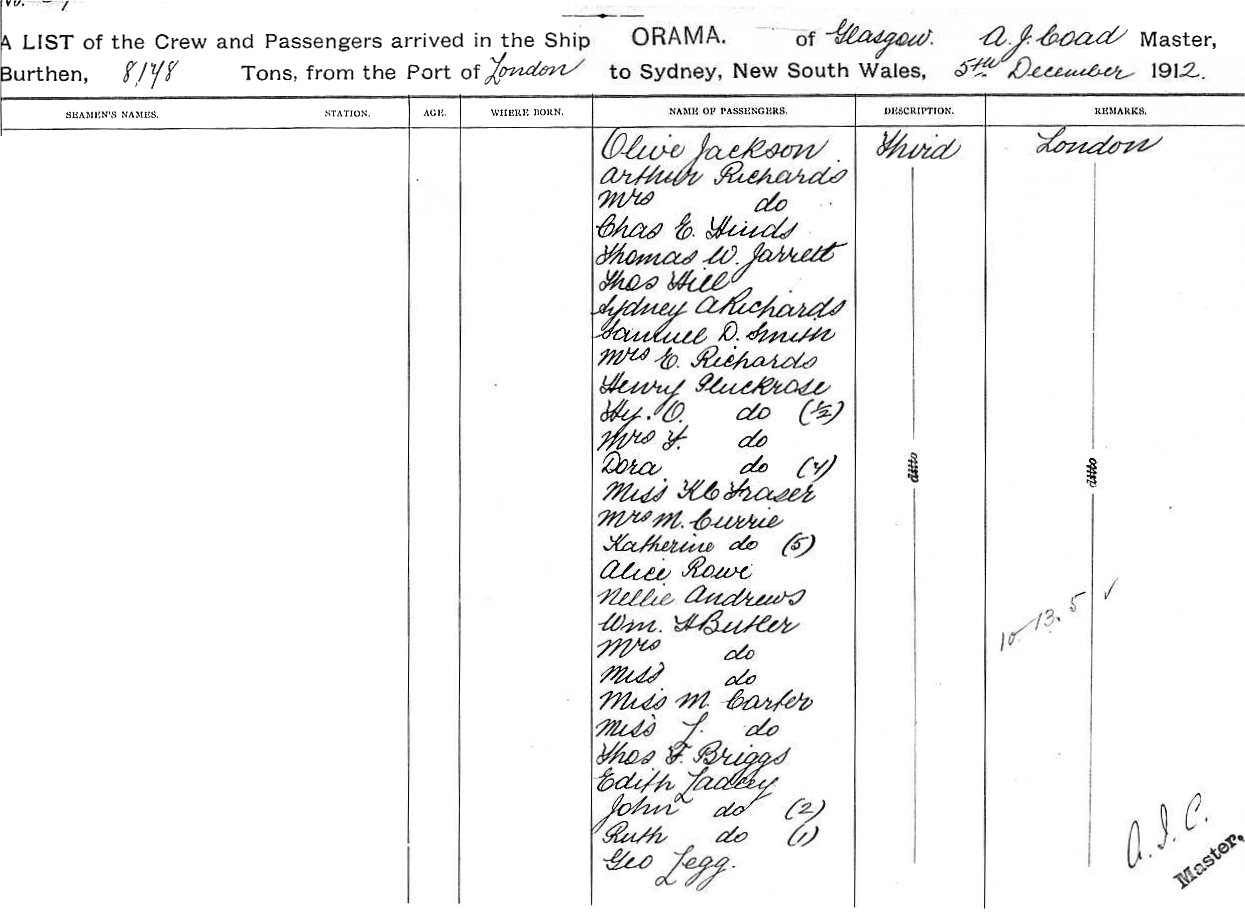 No.
A LIST of the Crew and Passengers arrived in the Ship ORAMA. of Glasgow. A. J. Coad Master,
Burthen, 8148 Tons, from the Port of London to Sydney, New South Wales, 5th December 1912.
SEAMEN'S NAMES. STATION. AGE. WHERE BORN. NAME OF PASSENGERS. DESCRIPTION. REMARKS.
Olive Jackson Third London
Arthur Richards
Mrs do
Chas E. Hinds
Thomas W. Jarrett
Thos Hill
Sydney A Richards
Samuel D. Smith
Mrs E. Richards
Henry Gluckrose
Hy. O. do (1/2)
Mrs Y. do
Dora do (4) ditto ditto
Miss K C Fraser
Mrs M. Currie
Katherine do (5)
Alice Rowe
Nellie Andrews
Wm. H Butler 10-13.5 ✓
Mrs do
Miss do
Miss M. Carter
Miss J. do
Thos F. Briggs
Edith Lacey
John do (2)
Ruth do (1) A. J. C.
Geo Legg. Master,